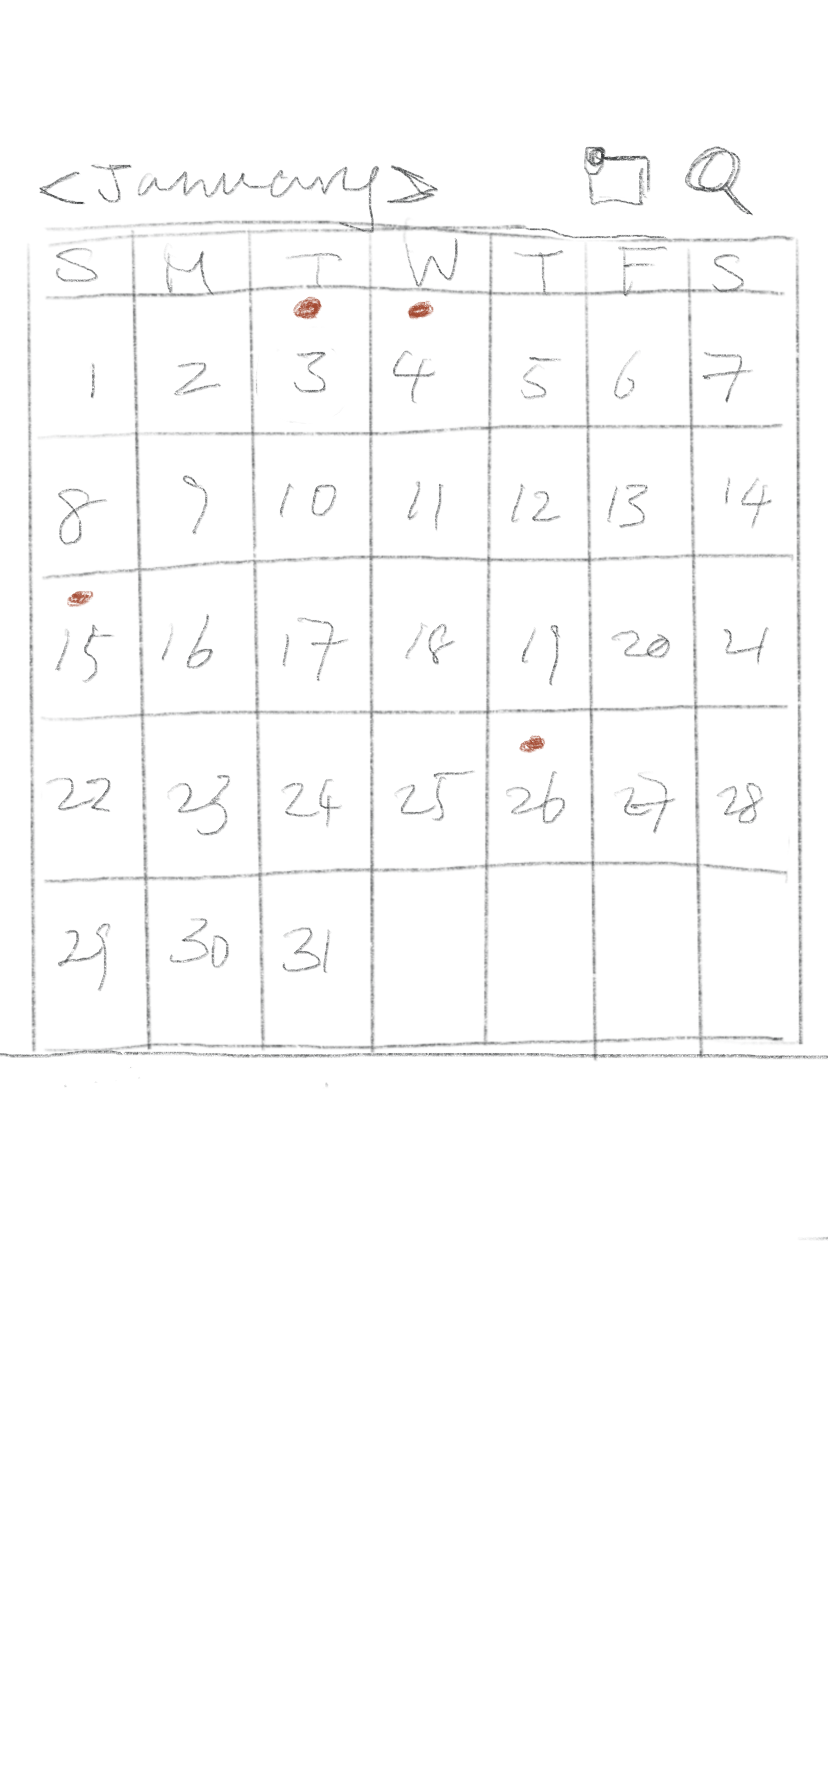 <January>
S M T W T F S
1 2 3 4 5 6 7
8 9 10 11 12 13 14
15 16 17 18 19 20 21
22 23 24 25 26 27 28
29 30 31